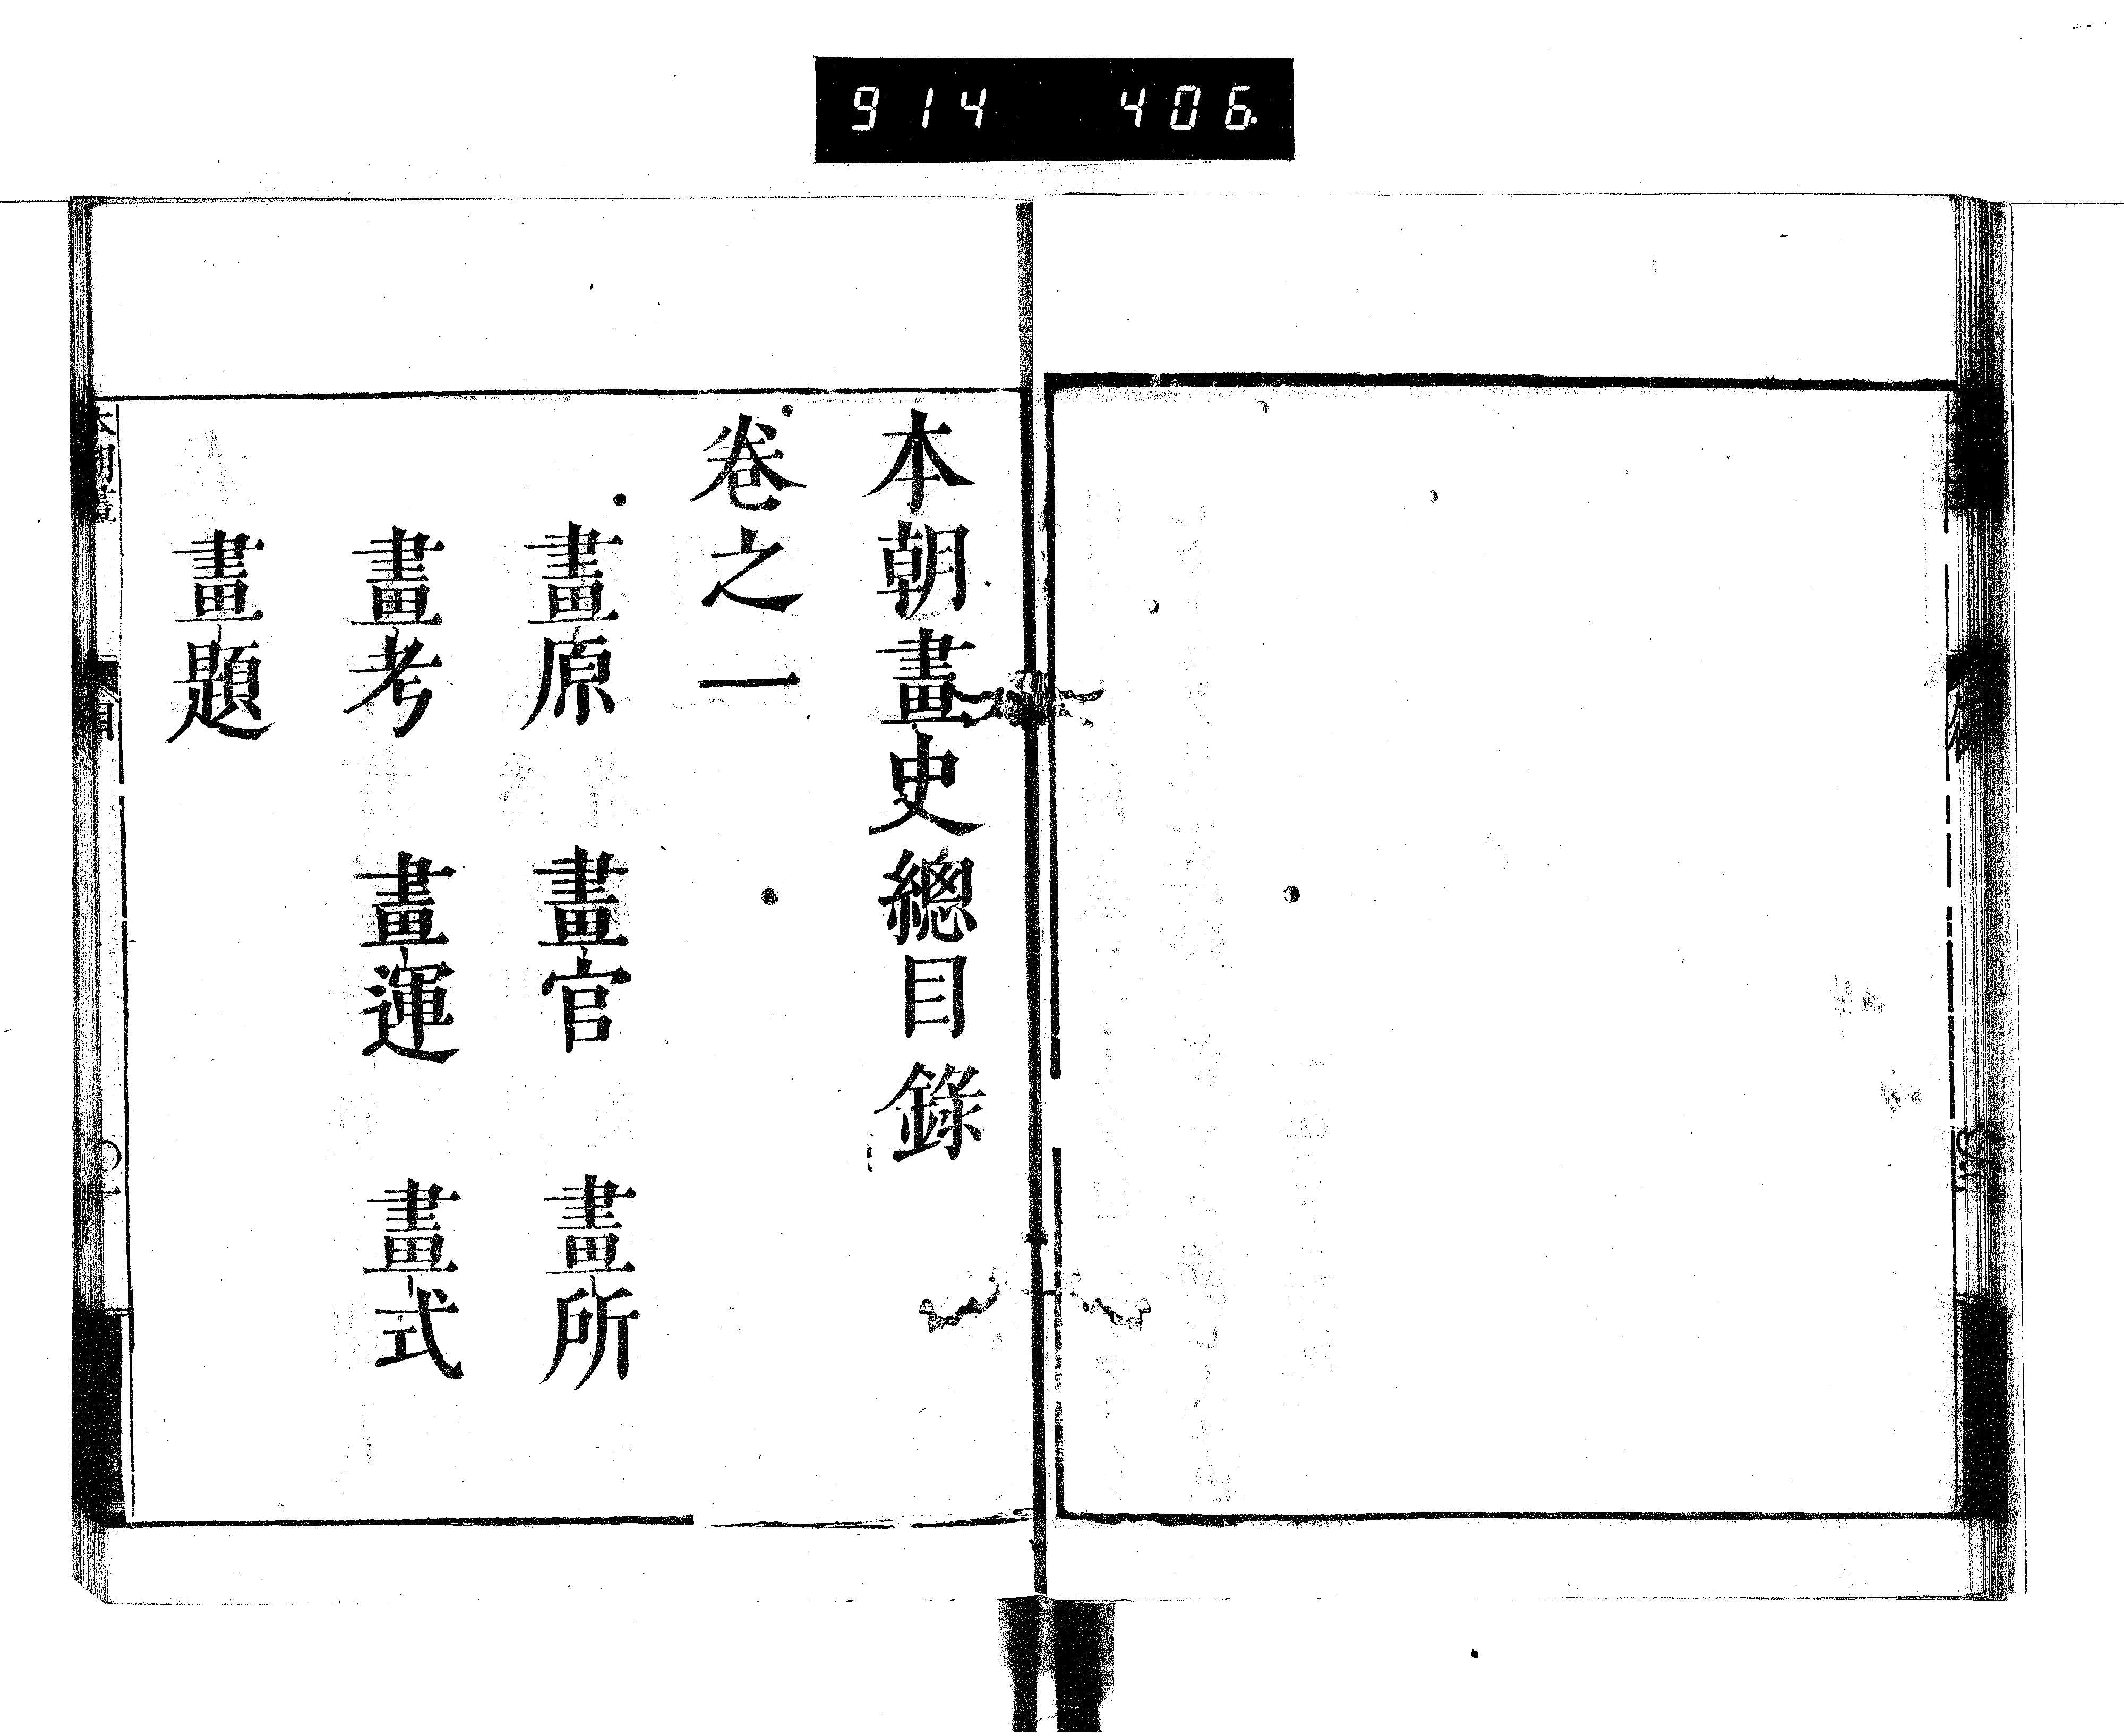 914 406
本朝畫史總目錄
卷之一
畫原 畫官 畫所
畫考 畫運 畫式
畫題